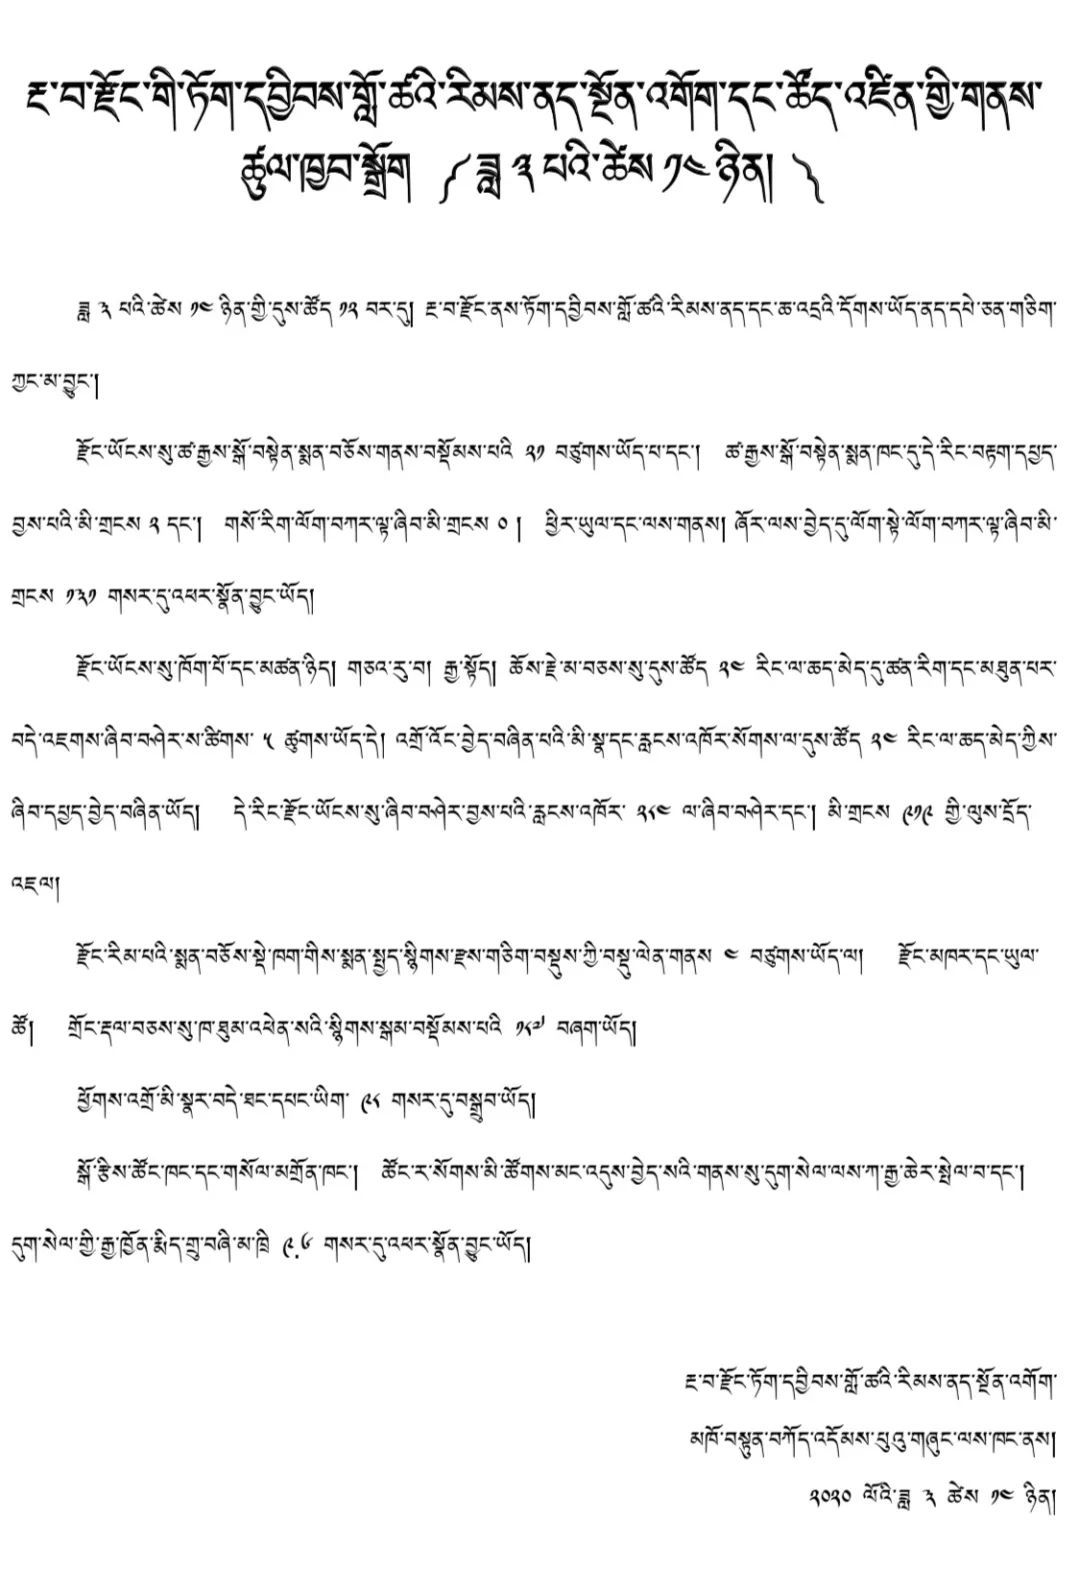 རྔ་བ་རྫོང་གི་ཏོག་དབྱིབས་གློ་ཚའི་རིམས་ནད་སྔོན་འགོག་དང་ཚོད་འཛིན་གྱི་གནས་
ཚུལ་ཁྱབ་སྒྲོག ༼ ཟླ ༣ པའི་ཚེས ༡༤ ཉིན། ༽
ཟླ ༣ པའི་ཚེས ༡༤ ཉིན་གྱི་དུས་ཚོད ༡༢ བར་དུ། རྔ་བ་རྫོང་ནས་ཏོག་དབྱིབས་གློ་ཚའི་རིམས་ནད་དང་ཆ་འདྲའི་དོགས་ཡོད་ནད་དཔེ་ཅན་གཅིག་
ཀྱང་མ་བྱུང་།
རྫོང་ཡོངས་སུ་ཚ་རྒྱས་སྒོ་བསྟེན་སྨན་བཅོས་གནས་བསྡོམས་པའི ༢༡ བཙུགས་ཡོད་པ་དང་། ཚ་རྒྱས་སྒོ་བསྟེན་སྨན་ཁང་དུ་དེ་རིང་བརྟག་དཔྱད་
བྱས་པའི་མི་གྲངས ༢ དང་། གསོ་རིག་ལོག་བཀར་ལྟ་ཞིབ་མི་གྲངས ༠ ། ཕྱིར་ཡུལ་དང་ལས་གནས། ཞོར་ལས་བྱེད་དུ་ལོག་སྟེ་ལོག་བཀར་ལྟ་ཞིབ་མི་
གྲངས ༡༣༡ གསར་དུ་འཕར་སྣོན་བྱུང་ཡོད།
རྫོང་ཡོངས་སུ་ཁོག་པོ་དང་མཚན་ཉིད། གཅའ་རུ་བ། རྒྱ་སྟོད། ཆོས་རྗེ་མ་བཅས་སུ་དུས་ཚོད ༢༤ རིང་ལ་ཆད་མེད་དུ་ཚན་རིག་དང་མཐུན་པར་
བདེ་འཇགས་ཞིབ་བཤེར་ས་ཚིགས་ ༥ ཚུགས་ཡོད་དེ། འགྲོ་འོང་བྱེད་བཞིན་པའི་མི་སྣ་དང་རླངས་འཁོར་སོགས་ལ་དུས་ཚོད ༢༤ རིང་ལ་ཆད་མེད་ཀྱིས་
ཞིབ་དཔྱད་བྱེད་བཞིན་ཡོད། དེ་རིང་རྫོང་ཡོངས་སུ་ཞིབ་བཤེར་བྱས་པའི་རླངས་འཁོར་ ༢༨༤ ལ་ཞིབ་བཤེར་དང་། མི་གྲངས ༩༡༩ གྱི་ལུས་དྲོད་
འཇལ།
རྫོང་རིམ་པའི་སྨན་བཅོས་སྡེ་ཁག་གིས་སྨན་སྤྱད་སྙིགས་རྫས་གཅིག་བསྡུས་ཀྱི་བསྡུ་ལེན་གནས ༤ བཙུགས་ཡོད་ལ། རྫོང་མཁར་དང་ཡུལ་
ཚོ། གྲོང་རྡལ་བཅས་སུ་ཁ་ཐུམ་འཕེན་སའི་སྙིགས་སྒམ་བསྡོམས་པའི ༡༨༧ བཞག་ཡོད།
ཕྱོགས་འགྲོ་མི་སྣར་བདེ་ཐང་དཔང་ཡིག་ ༩༨ གསར་དུ་བསྒྲུབ་ཡོད།
སྒོ་རྩིས་ཚོང་ཁང་དང་གསོལ་མགྲོན་ཁང་། ཚོང་ར་སོགས་མི་ཚོགས་མང་འདུས་བྱེད་སའི་གནས་སུ་དུག་སེལ་ལས་ཀ་རྒྱ་ཆེར་སྤེལ་བ་དང་།
དུག་སེལ་གྱི་རྒྱ་ཁྱོན་རྨིད་གྲུ་བཞི་མ་ཁྲི ༩.༦ གསར་དུ་འཕར་སྣོན་བྱུང་ཡོད།
རྔ་བ་རྫོང་ཏོག་དབྱིབས་གློ་ཚའི་རིམས་ནད་སྔོན་འགོག་
མཁོ་བསྟུན་བཀོད་འདོམས་པུའུ་གཞུང་ལས་ཁང་ནས།
༢༠༢༠ ལོའི་ཟླ ༣ ཚེས ༡༤ ཉིན།